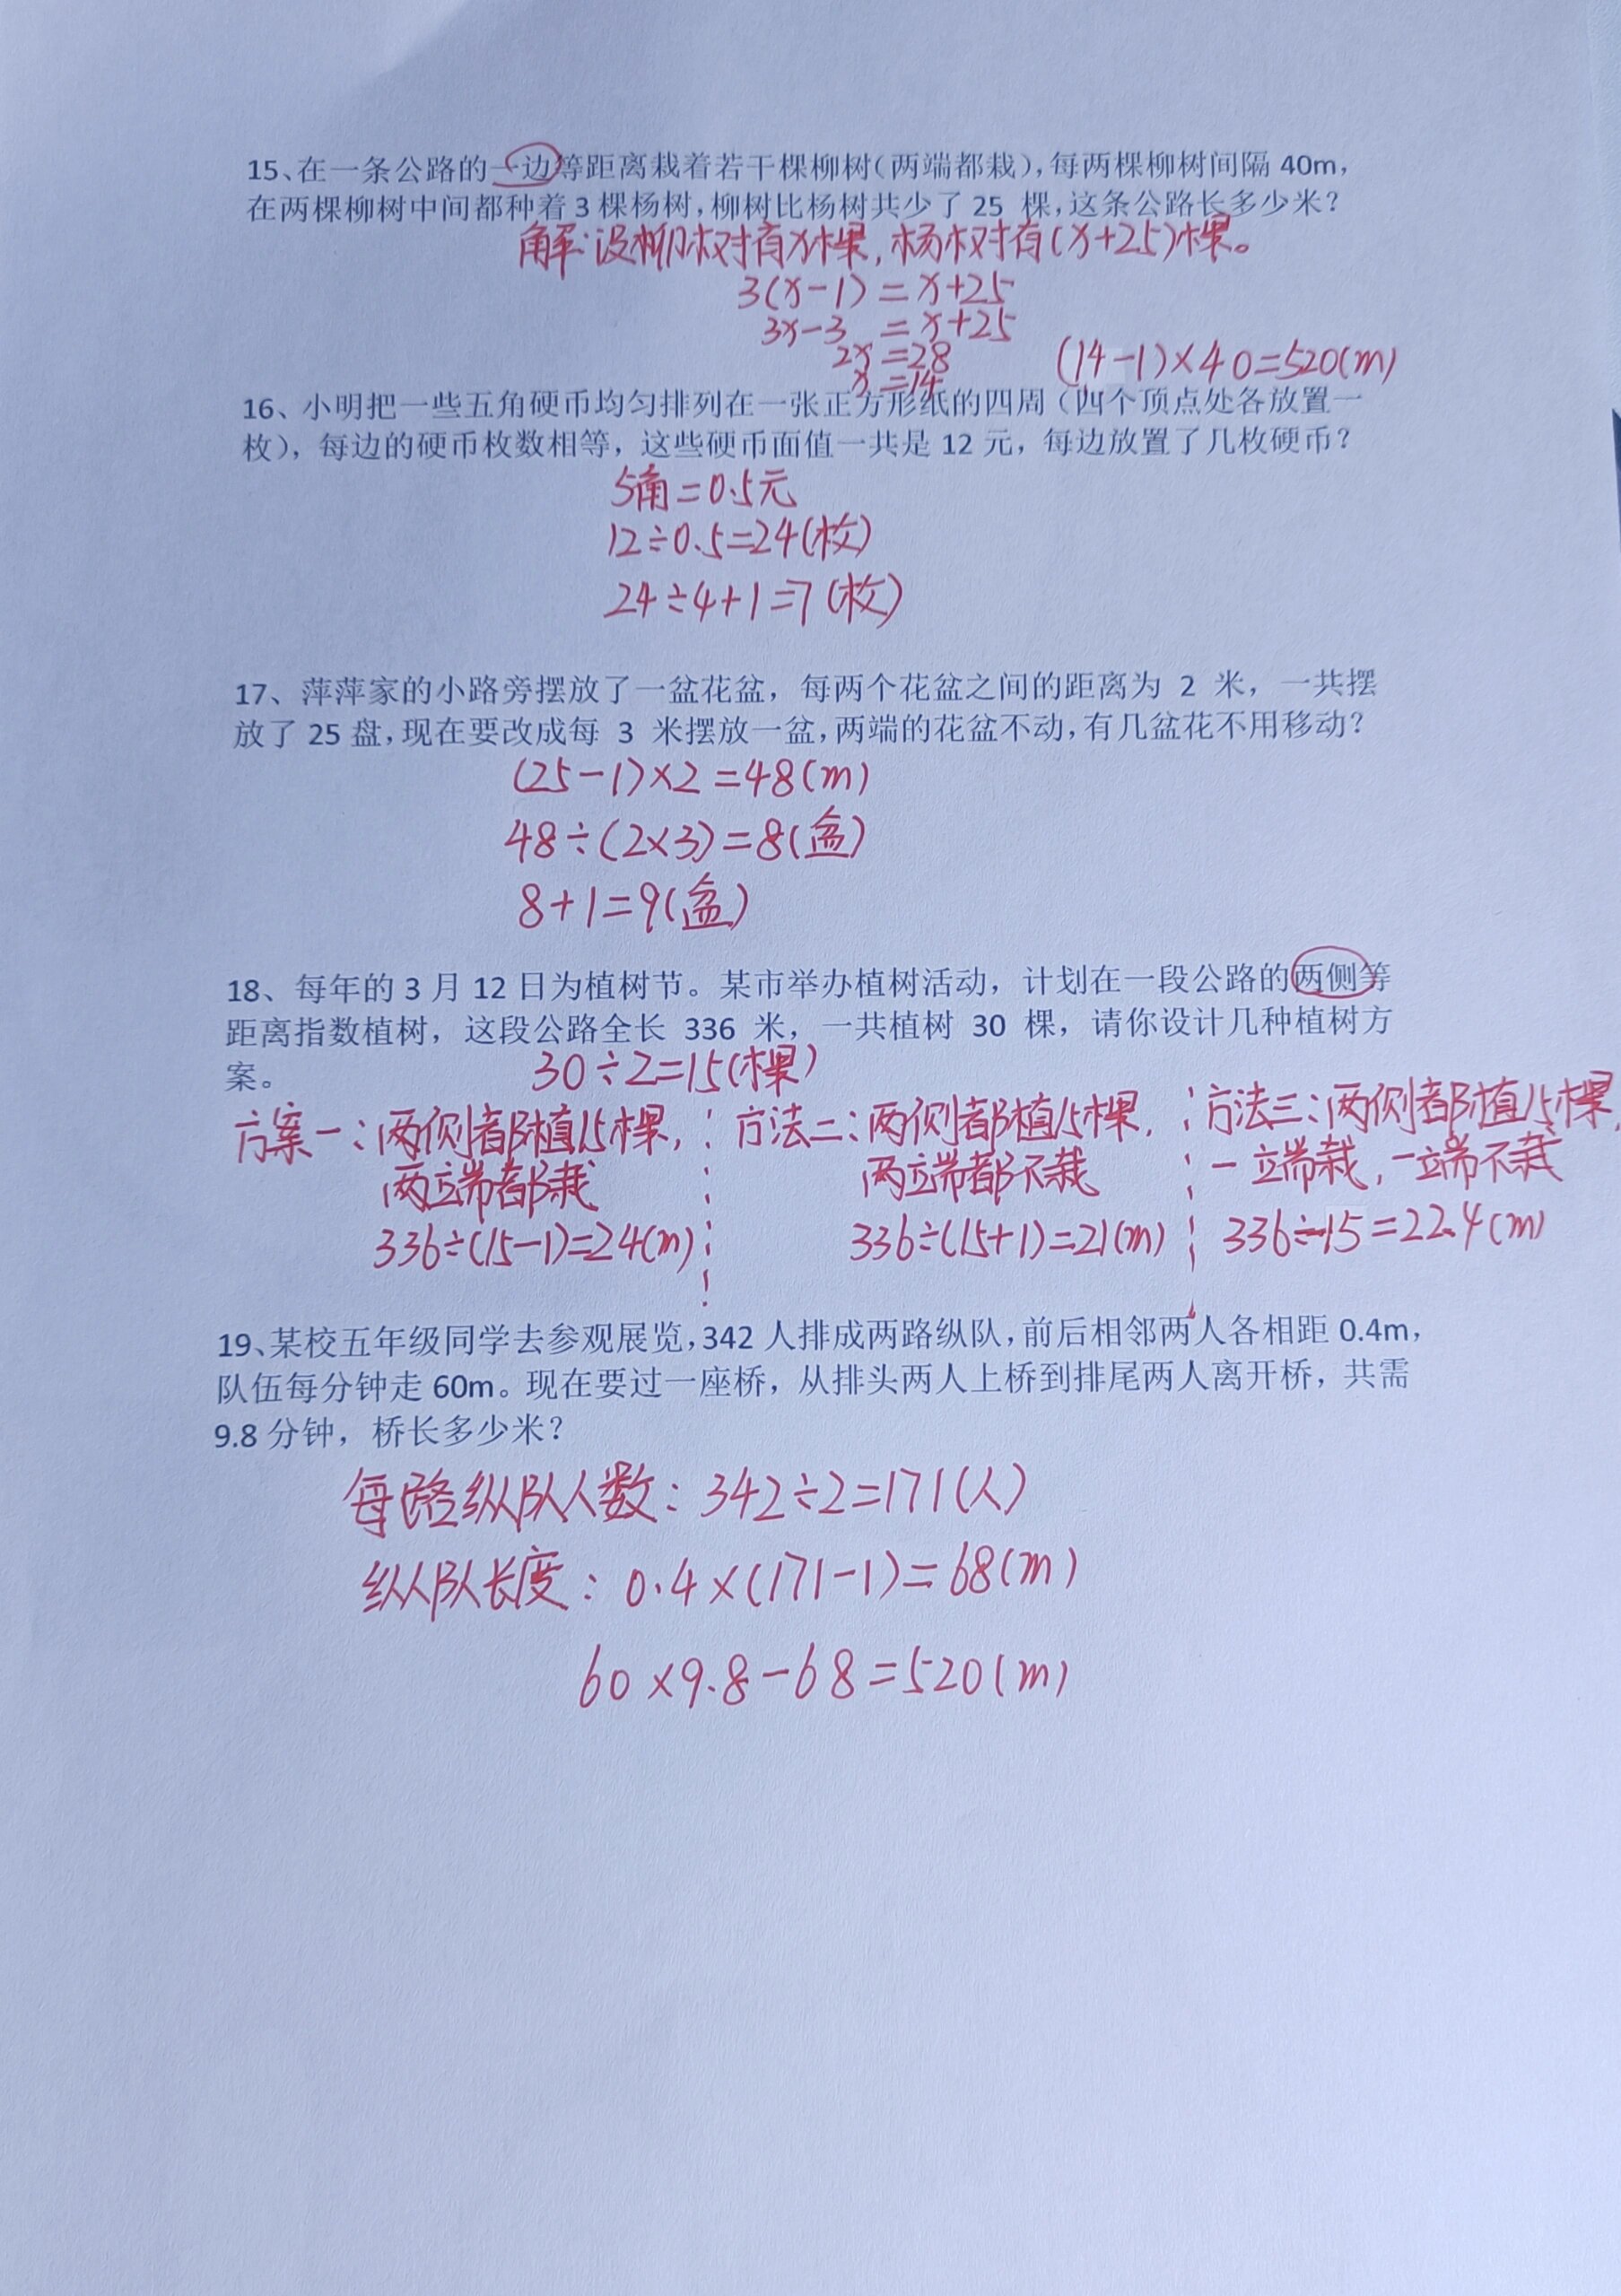 15、在一条公路的一边等距离栽着若干棵柳树(两端都栽),每两棵柳树间隔 40m,
在两棵柳树中间都种着 3 棵杨树,柳树比杨树共少了 25 棵,这条公路长多少米?
解:设柳树有x棵,杨树有(x+25)棵。
3(x-1)=x+25
3x-3 =x+25
2x=28
x=14
(14-1)×40=520(m)
16、小明把一些五角硬币均匀排列在一张正方形纸的四周(四个顶点处各放置一
枚),每边的硬币枚数相等,这些硬币面值一共是 12 元,每边放置了几枚硬币?
5角=0.5元
12÷0.5=24(枚)
24÷4+1=7(枚)
17、萍萍家的小路旁摆放了一盆花盆,每两个花盆之间的距离为 2 米,一共摆
放了 25 盘,现在要改成每 3 米摆放一盆,两端的花盆不动,有几盆花不用移动?
(25-1)×2=48(m)
48÷(2×3)=8(盆)
8+1=9(盆)
18、每年的 3 月 12 日为植树节。某市举办植树活动,计划在一段公路的两侧等
距离指数植树,这段公路全长 336 米,一共植树 30 棵,请你设计几种植树方
案。
30÷2=15(棵)
方案一:两侧都植15棵,
两端都栽
336÷(15-1)=24(m)
方法二:两侧都植15棵,
两端都不栽
336÷(15+1)=21(m)
方法三:两侧都植15棵,
一端栽,一端不栽
336÷15=22.4(m)
19、某校五年级同学去参观展览,342 人排成两路纵队,前后相邻两人各相距 0.4m,
队伍每分钟走 60m。现在要过一座桥,从排头两人上桥到排尾两人离开桥,共需
9.8 分钟,桥长多少米?
每路纵队人数:342÷2=171(人)
纵队长度:0.4×(171-1)=68(m)
60×9.8-68=520(m)